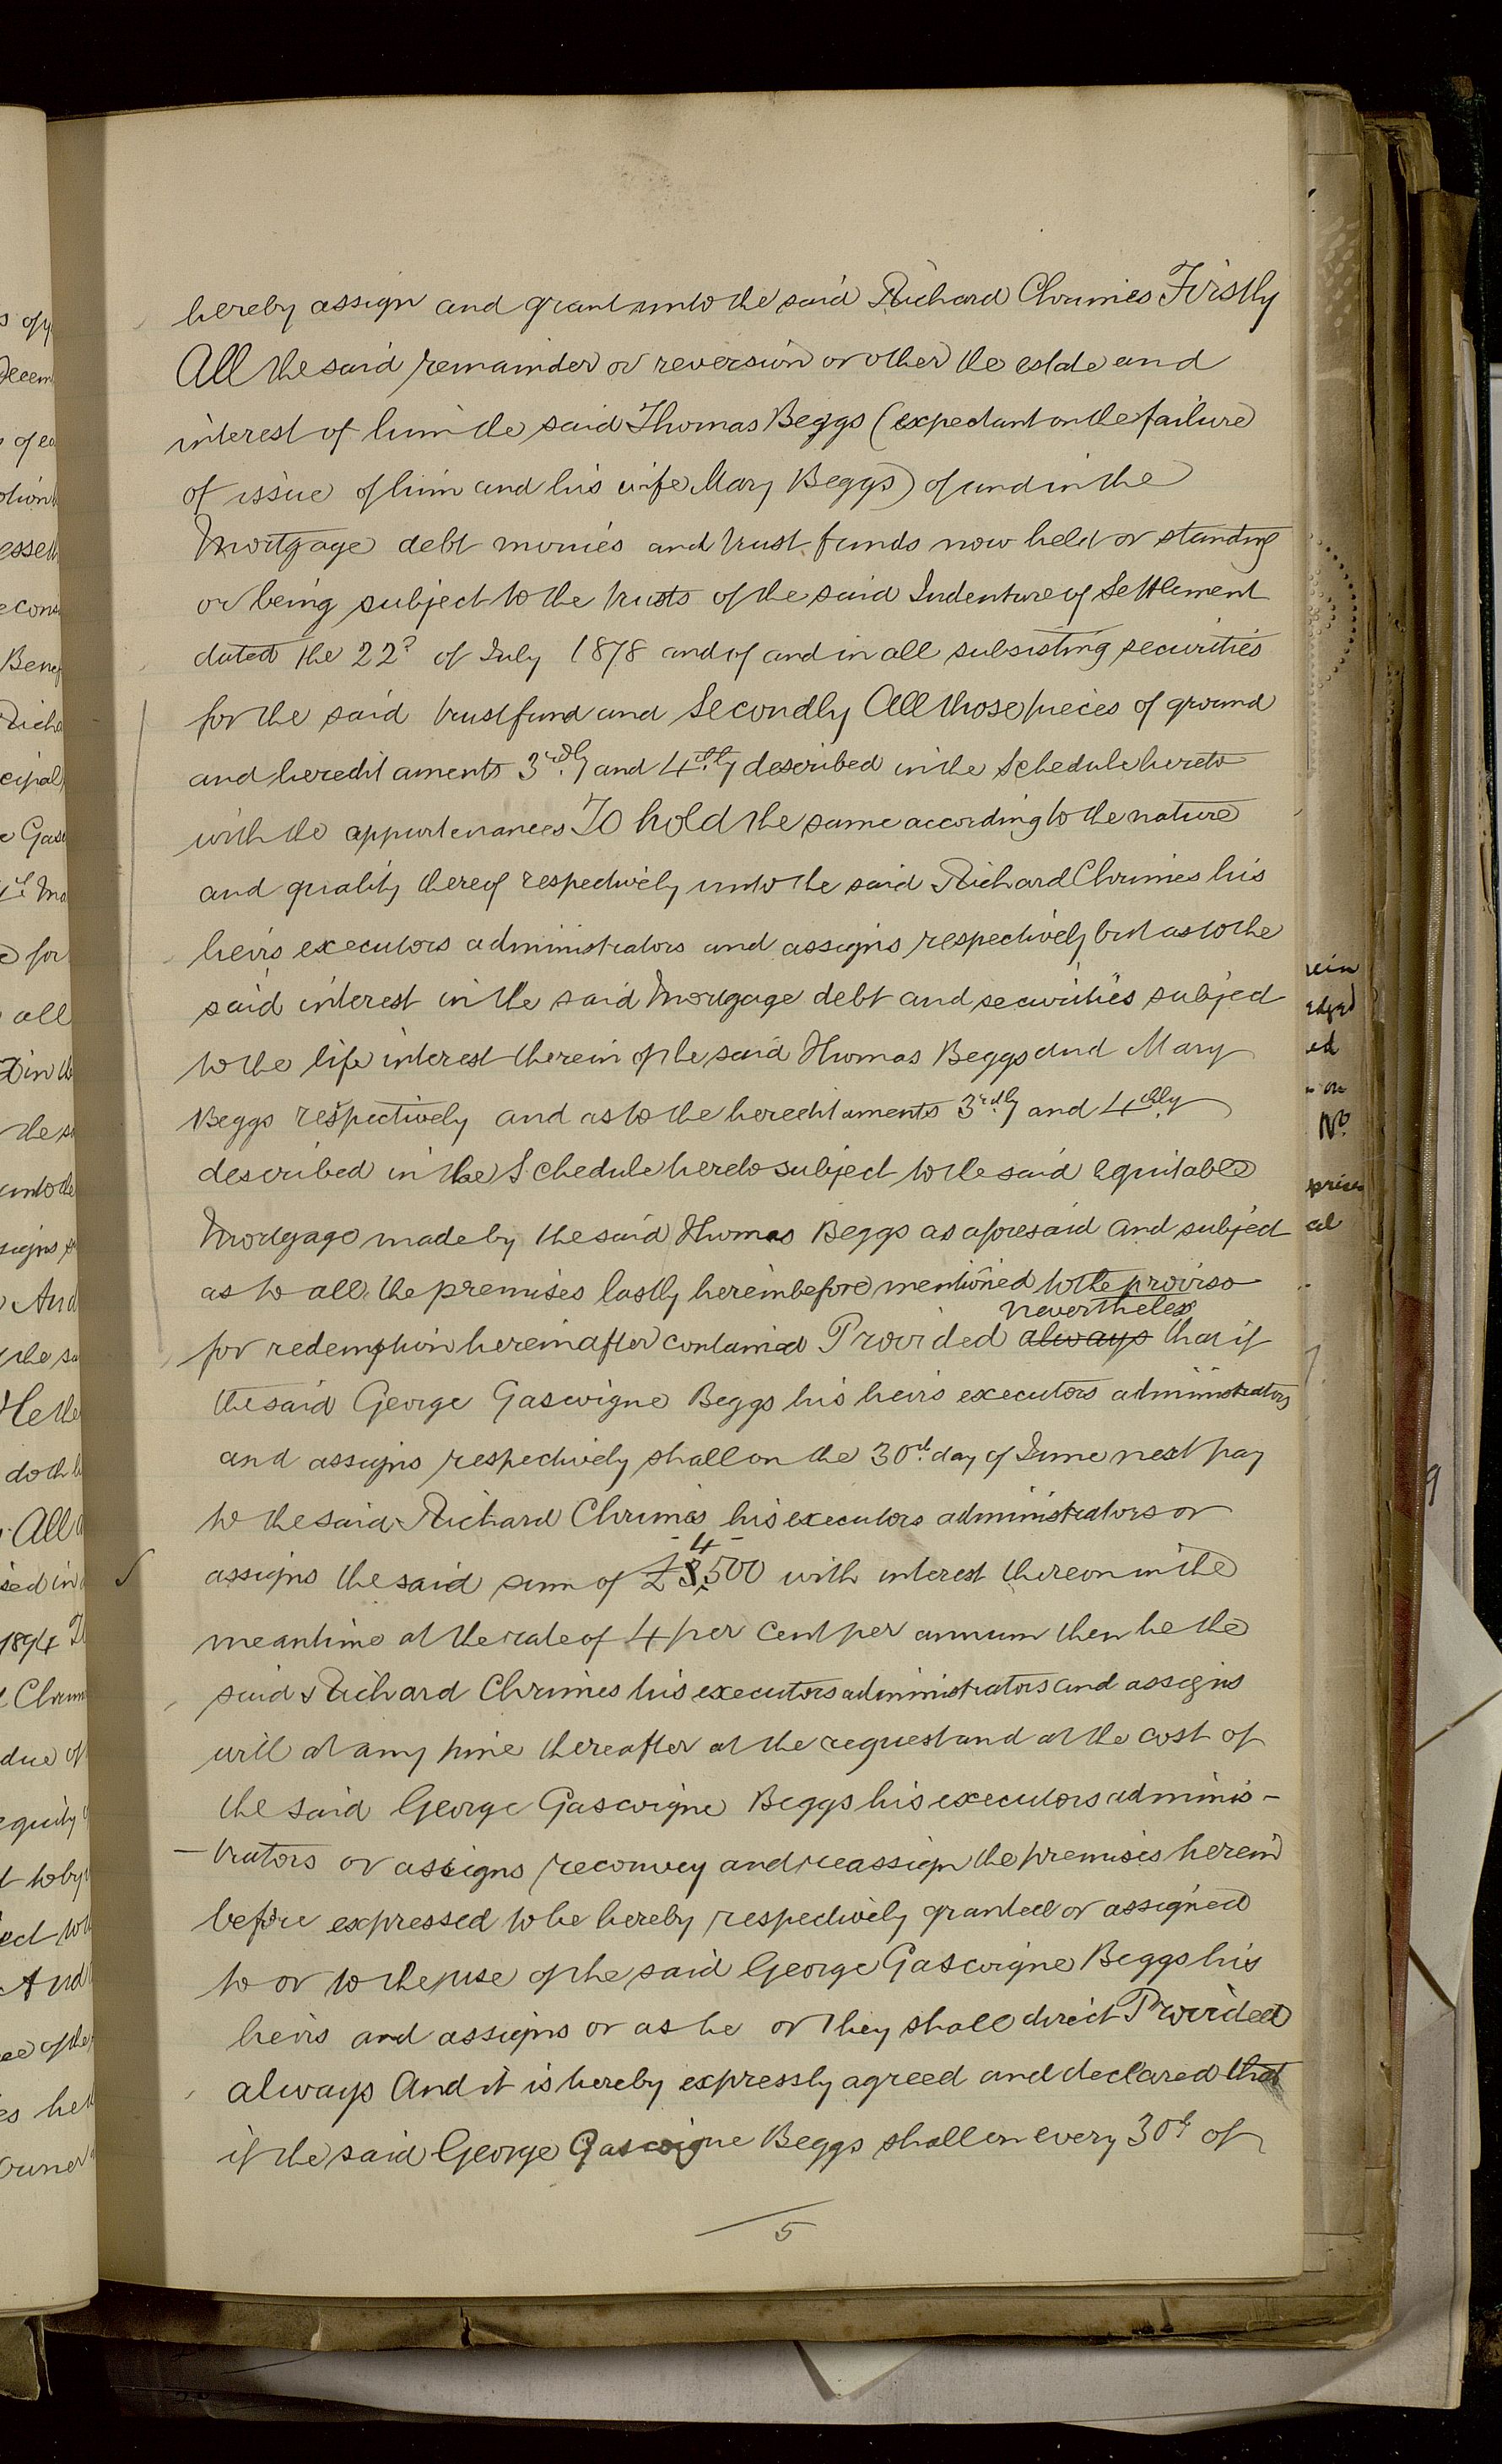 hereby assign and grant unto the said Richard Chrimes Firstly
All the said remainder or reversion or other the estate and
interest of him the said Thomas Beggs (expectant on the failure
of issue of him and his wife Mary Beggs) of and in the
Mortgage debt monies and trust funds now held or standing
or being subject to the trusts of the said Indenture of Settlement
dated the 22d of July 1878 and of and in all subsisting securities
for the said trust fund and Secondly All those pieces of ground
and heredit aments 3rdly and 4thly described in the Schedule hereto
with the appurtenances To hold the same according to the nature
and quality thereof respectively unto the said Richard Chrimes his
heirs executors administrators and assigns respectively but as to the
said interest in the said Mortgage debt and securities subject
to the life interest therein of the said Thomas Beggs and Mary
Beggs respectively and as to the heredit aments 3rdly and 4thly
described in the Schedule hereto subject to the said equitable
Mortgage made by the said Thomas Beggs as aforesaid and subject
as to all the premises lastly hereinbefore mentioned to the proviso
nevertheless
for redemption hereinafter contained Provided always that if
the said George Gascoigne Beggs his heirs executors administrators
and assigns respectively shall on the 30th day of June next pay
to the said Richard Chrimes his executors administrators or
4
assigns the said sum of £3,500 with interest thereon in the
meantime at the rate of 4 per Cent per annum then he the
said Richard Chrimes his executors administrators and assigns
will at any time thereafter at the request and at the cost of
the said George Gascoigne Beggs his executors adminis-
-trators or assigns reconvey and reassign the premises herein
before expressed to be hereby respectively granted or assigned
to or to the use of the said George Gascoigne Beggs his
heirs and assigns or as he or they shall direct Provided
always And it is hereby expressly agreed and declared that
if the said George Gascoigne Beggs shall on every 30th of
5